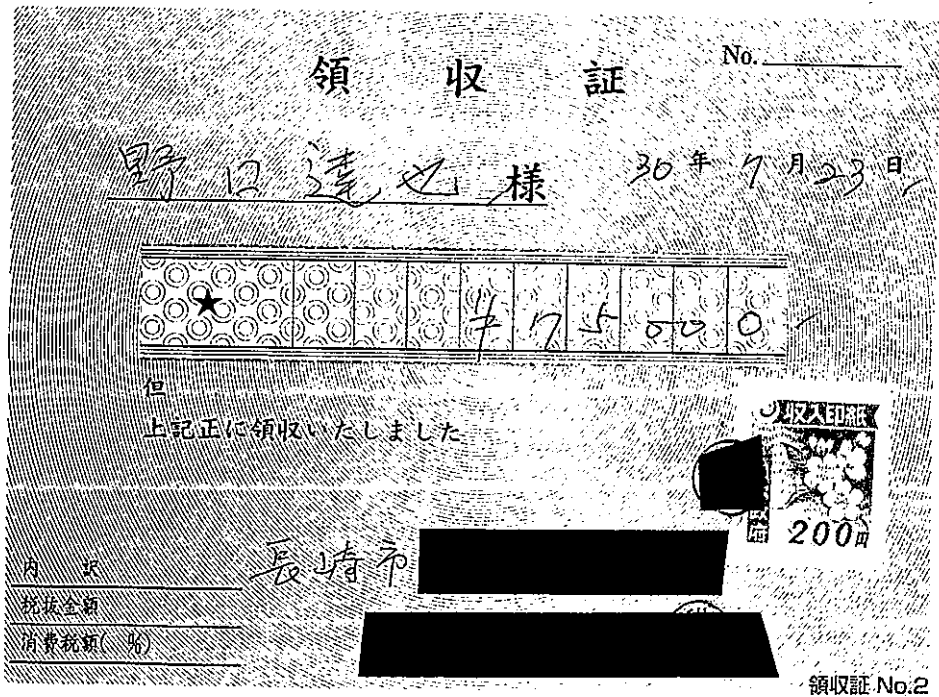 領収証
No.
野口達也 様
30年7月23日
★
¥75000-
但
上記正に領収いたしました
収入印紙
200円
内訳
税抜金額
消費税額( %)
長崎市
領収証 No.2